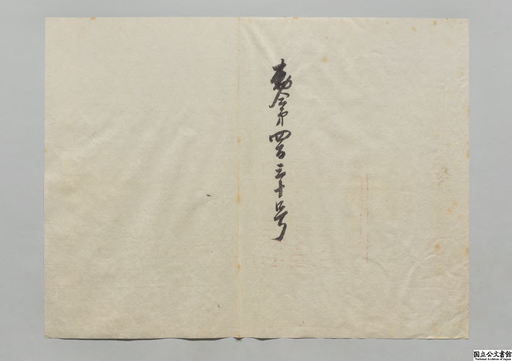 勅令第四百三十号
国立公文書館
National Archives of Japan